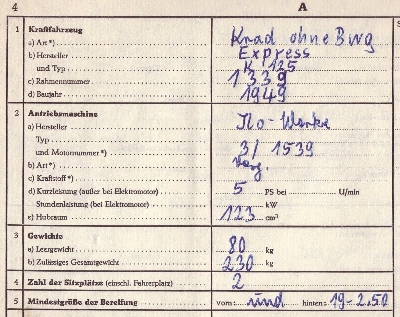 4 A
1 Kraftfahrzeug
a) Art*) Krad ohne Bwg
b) Hersteller Express
und Typ K 125
c) Rahmennummer 1339
d) Baujahr 1949
2 Antriebsmaschine
a) Hersteller Ilo-Werke
Typ
und Motornummer*) 3/ 1539
b) Art*)
c) Kraftstoff*)
d) Kurzleistung (außer bei Elektromotor) 5 PS bei U/min
Stundenleistung (bei Elektromotor) kW
e) Hubraum 123 cm³
3 Gewichte
a) Leergewicht 80 kg
b) Zulässiges Gesamtgewicht 230 kg
4 Zahl der Sitzplätze (einschl. Fahrerplatz) 2
5 Mindestgröße der Bereifung vorn: und hinten: 19-2.50